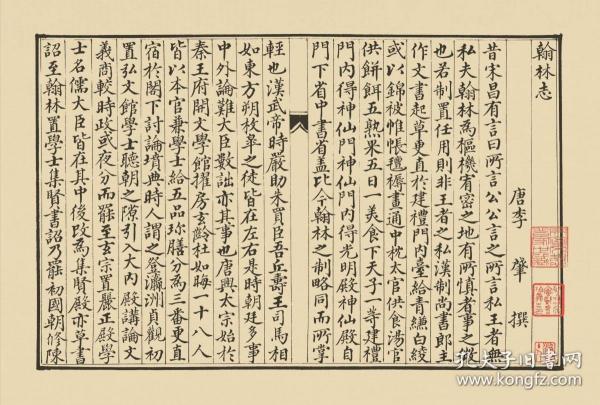 翰林志
唐李　肇　撰
昔宋昌有言曰所言公公言之所言私王者無
私夫翰林為樞機宥密之地有所慎者事之微
也若制置任用則非王者之私漢制尚書郎主
作文書起草更直於建禮門內臺給青縑白綾
或以錦被帷帳氊褥畫通中枕太官供食湯官
供餅餌五熟米五日一美食下天子一等建禮
門內得神仙門神仙門內得光明殿神仙殿自
門下省中書省蓋比今翰林之制略同而所掌
輕也漢武帝時嚴助朱買臣吾丘壽王司馬相
如東方朔枚皋之徒皆在左右是時朝廷多事
中外論難大臣數詘亦其事也唐興太宗始於
秦王府開文學館擢房玄齡杜如晦一十八人
皆以本官兼學士給五品珍膳分為三番更直
宿於閣下討論墳典時人謂之登瀛洲貞觀初
置弘文館學士聽朝之隙引入大內殿講論文
義商較時政或夜分而罷至玄宗置麗正殿學
士名儒大臣皆在其中後改為集賢殿亦草書
詔至翰林置學士集賢書詔乃罷初國朝修陳
孔夫子旧书网
www.kongfz.com